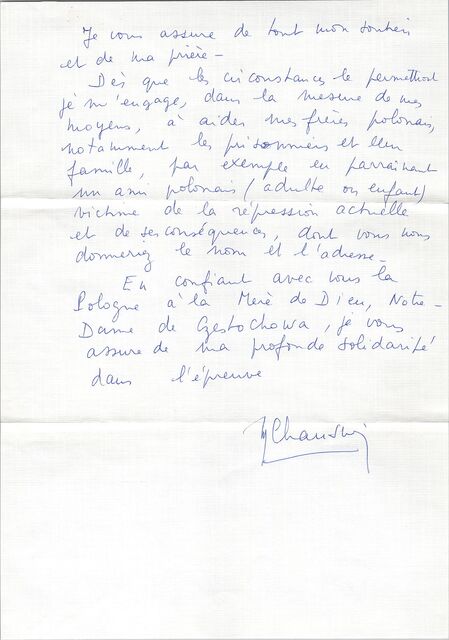 Je vous assure de tout mon soutien
et de ma prière –
Dès que les circonstances le permettront
je m'engage, dans la mesure de mes
moyens, à aider mes frères polonais,
notamment les prisonniers et leur
famille, par exemple en parrainant
un ami polonais (adulte ou enfant)
victime de la répression actuelle
et de ses conséquences, dont vous nous
donneriez le nom et l'adresse –
En confiant avec vous la
Pologne à la Mère de Dieu, Notre-
Dame de Czestochowa, je vous
assure de ma profonde solidarité
dans l'épreuve